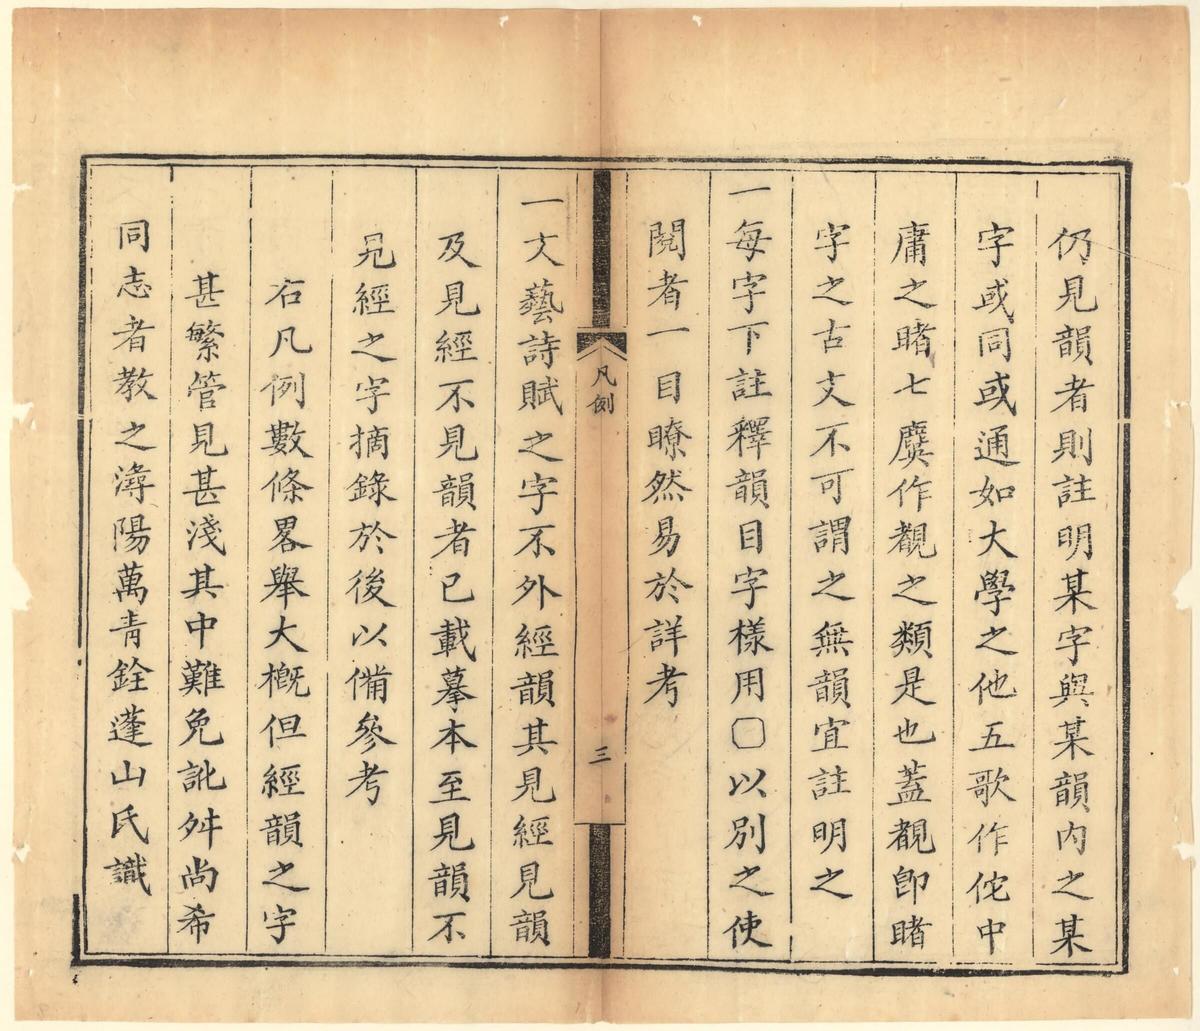 仍見韻者則註明某字與某韻內之某
字或同或通如大學之他五歌作佗中
庸之睹七麌作覩之類是也蓋覩卽睹
字之古文不可謂之無韻宜註明之
一每字下註釋韻目字樣用〇以別之使
閱者一目瞭然易於詳考
凡例
三
一文藝詩賦之字不外經韻其見經見韻
及見經不見韻者已載摹本至見韻不
見經之字摘錄於後以備參考
右凡例數條畧舉大槪但經韻之字
甚繁管見甚淺其中難免訛舛尚希
同志者教之潯陽萬青銓蓬山氏識